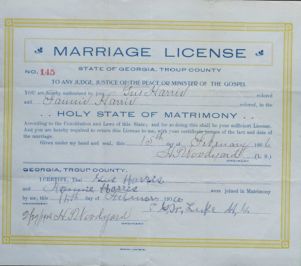 MARRIAGE LICENSE
STATE OF GEORGIA, TROUP COUNTY
NO. 145
TO ANY JUDGE, JUSTICE OF THE PEACE OR MINISTER OF THE GOSPEL
YOU are hereby authorized to join Harris colored
and Fannie Harris colored, in the
. . HOLY STATE OF MATRIMONY . .
According to the Constitution and Laws of this State; and for so doing this shall be your sufficient License.
And you are hereby required to return this License to me with your certificate hereon of the fact and date of
the marriage.
Given under my hand and seal, this 15th day of February
H.P. Woodyard (L. S.)
GEORGIA, TROUP COUNTY.
I CERTIFY, That Harris
and Harris were joined in Matrimony
by me, this day of
H.P. Woodyard